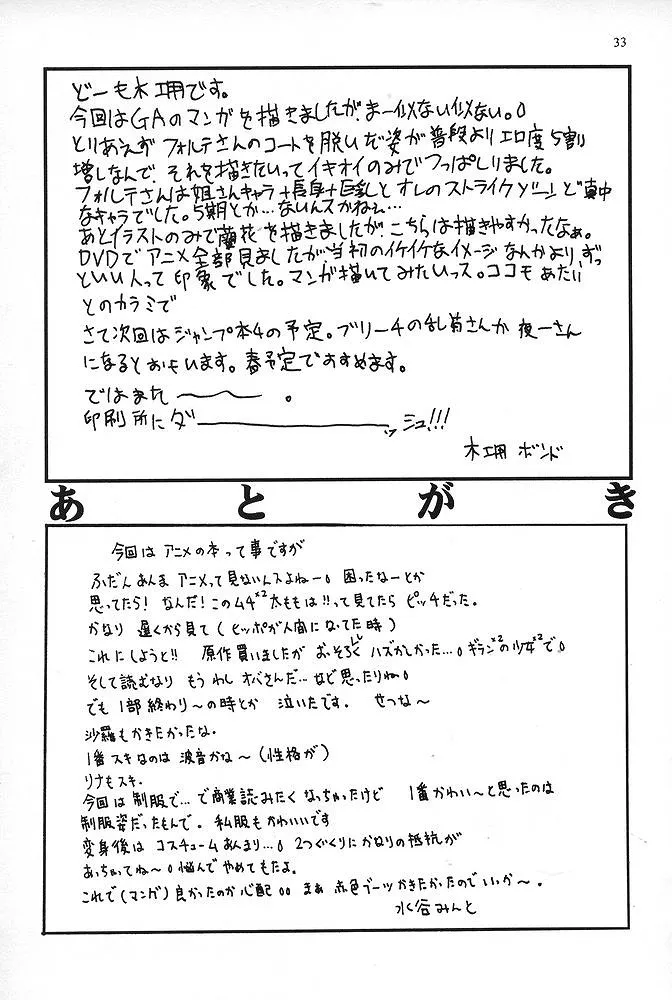 33
どーも木工用です。
今回はGAのマンガを描きましたが、まー似ない似ない。
とりあえず フォルテさんのコートを脱いだ姿が普段よりエロ度5割
増しなんで、それを描きたいってイキオイのみでつっぱしりました。
フォルテさんは姐さんキャラ+長身+巨乳とオレのストライクゾーンど真中
なキャラでした。5期とか…ないんスかねぇ…
あとイラストのみで蘭花を描きましたが、こちらは描きやすかったなぁ。
DVDでアニメ全部見ましたが当初のイケイケなイメージなんかより、ずっ
といい人って印象でした。マンガ描いてみたいっス。ココモ あたい
とのカラミで
さて次回はジャンプ本4の予定。ブリーチの乱菊さんか 夜一さん
になるとおもいます。春予定でおすすめます。
ではまた〜〜。
印刷所にダーーッシュ!!!
木工用 ボンド
あとがき
今回は アニメの本って事ですが
ふだん あんま アニメって見ないんスよねー。困ったなーとか
思ってたら! なんだ!このムチ×2 太ももは!!って見てたら ピッチだった。
かなり 遅くから見て(ヒッポが人間になってた時)
これにしようと!! 原作買いましたが おっそろしくハズかしかった…。ギラン×2の少女×2で。
そして読むなり もう わし オバさんだ…など思ったりね。
でも 1部終わり〜の時とか 泣いたです。 せつな〜
沙羅もかきたかったな。
1番スキなのは 波音かな〜(性格が)
リナもスキ.
今回は 制服で…で商業読みたく なっちゃったけど 1番かわい〜と思ったのは
制服姿だったもんで。 私服もかわいいです
変身後は コスチュームあんまり…。2つぐくりにかなりの抵抗が
あっちゃってね〜。悩んで やめてもたよ。
これで(マンガ)良かったのか 心配。。 まぁ 赤色ブーツかきたかったのでいっか〜.
水谷みんと